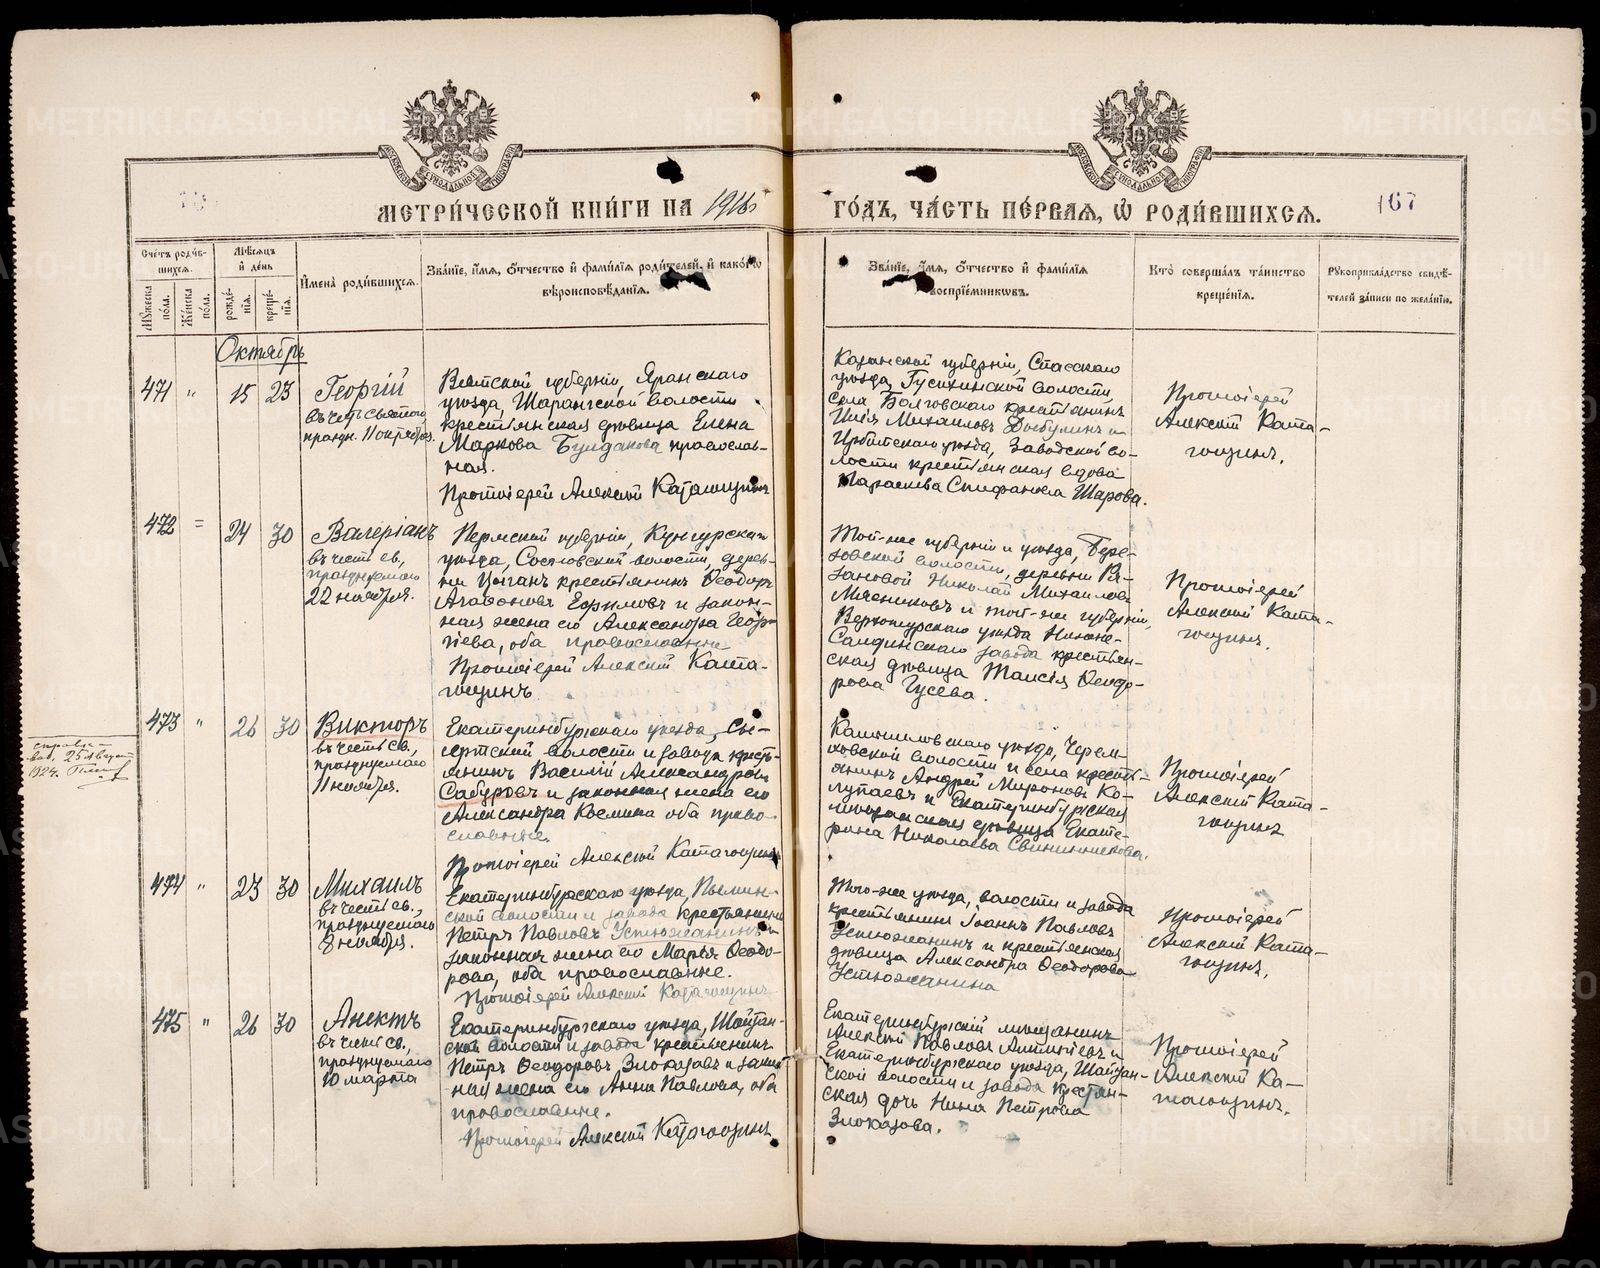 METRIKI.GASO-URAL.RU
МЕТРИ́ЧЕСКОЙ КНИ́ГИ НА 1916
ГО́ДЪ, ЧА́СТЬ ПЕ́РВАЯ, Ѡ҆ РОДИ́ВШИХСЯ.
167
Сче́тъ роди́в-
шихся.
Мꙋ́жеска по́ла.
Же́нска по́ла.
Мѣ́сяцъ
и҆ де́нь
рожде́-
нїя.
креще́-
нїя.
И҆мена̀ роди́вшихся.
Зва́нїе, и҆́мя, ѻ҆́тчество и҆ фами́лїя роди́телей, и҆ како́гѡ
вѣроисповѣ́данїя.
Зва́нїе, и҆́мя, ѻ҆́тчество и҆ фами́лїя
воспрїе́мникѡвъ.
Кто̀ соверша́лъ та́инство
креще́нїя.
Рꙋкоприкла́дство свидѣ́-
телей за́писи по жела́нїю.
Октябрь
471 " 15 23
Георгій
въ честь святого,
праздн. 11 октября.
Вятской губерніи, Яранскаго
уѣзда, Шарангской волости
крестьянская дѣвица Елена
Маркова Булдакова православ-
ная.
Протоіерей Алексій Катагощинъ
Казанской губерніи, Спасскаго
уѣзда, Гусихинской волости,
села Болговскаго крестьянинъ
Илія Михаиловъ и
Ирбитскаго уѣзда, Заводской во-
лости крестьянская вдова
Параскева Епифанова Шарова.
Протоіерей
Алексій Ката-
гощинъ.
472 = 24 30
Валеріанъ
въ честь св.,
празднуемаго
22 ноября.
Пермской губерніи, Кунгурскаго
уѣзда, Сосновской волости, дерев-
ни Цыганъ крестьянинъ Ѳеодоръ
Агафоновъ Ефимовъ и закон-
ная жена его Александра Геор-
гіева, оба православные
Протоіерей Алексій Ката-
гощинъ
Той-же губерніи и уѣзда, Бере-
зовской волости, деревни
Николай Михаиловъ
Мясниковъ и той-же губерніи,
Верхотурскаго уѣзда Нижне-
Салдинскаго завода крестьян-
ская дѣвица Таисія Ѳеодо-
рова Гусева.
Протоіерей
Алексій Ката-
гощинъ.
справка
25 Августа
1924.
473 " 26 30
Викторъ
въ честь св.,
празднуемаго
11 ноября.
Екатеринбургскаго уѣзда, Сы-
сертской волости и завода кресть-
янинъ Василій Александровъ
Сабуровъ и законная жена его
Александра Космина оба право-
славные.
Протоіерей Алексій Катагощинъ
Камышловскаго уѣзда, Черем-
ховской волости и села кресть-
янинъ Андрей Мироновъ Ко-
лупаевъ и Екатеринбургская
мѣщанская дѣвица Екате-
рина Николаева Свинин.
Протоіерей
Алексій Ката-
гощинъ
474 " 23 30
Михаилъ
въ честь св.,
празднуемаго
8 ноября.
Екатеринбургскаго уѣзда, Пышмин-
ской волости и завода крестьянинъ
Петръ Павловъ Устюжанинъ и
законная жена его Марья Ѳеодо-
рова, оба православные.
Протоіерей Алексій Катагощинъ
Того-же уѣзда, волости и завода
крестьянинъ Іоаннъ Павловъ
Устюжанинъ и крестьянская
дѣвица Александра Ѳеодорова
Устюжанина
Протоіерей
Алексій Ката-
гощинъ.
475 " 26 30
Анектъ
въ честь св.,
празднуемаго
10 марта
Екатеринбургскаго уѣзда, Шайтан-
ской волости и завода крестьянинъ
Петръ Ѳеодоровъ Злоказовъ и закон-
ная жена его Анна Павлова, оба
православные.
Протоіерей Алексій Катагощинъ
Екатеринбургскій мѣщанинъ
Алексій Павловъ и
Екатеринбургскаго уѣзда, Шайтан-
ской волости и завода крестьян-
ская дочь Нина Петрова
Злоказова.
Протоіерей
Алексій Ка-
тагощинъ.